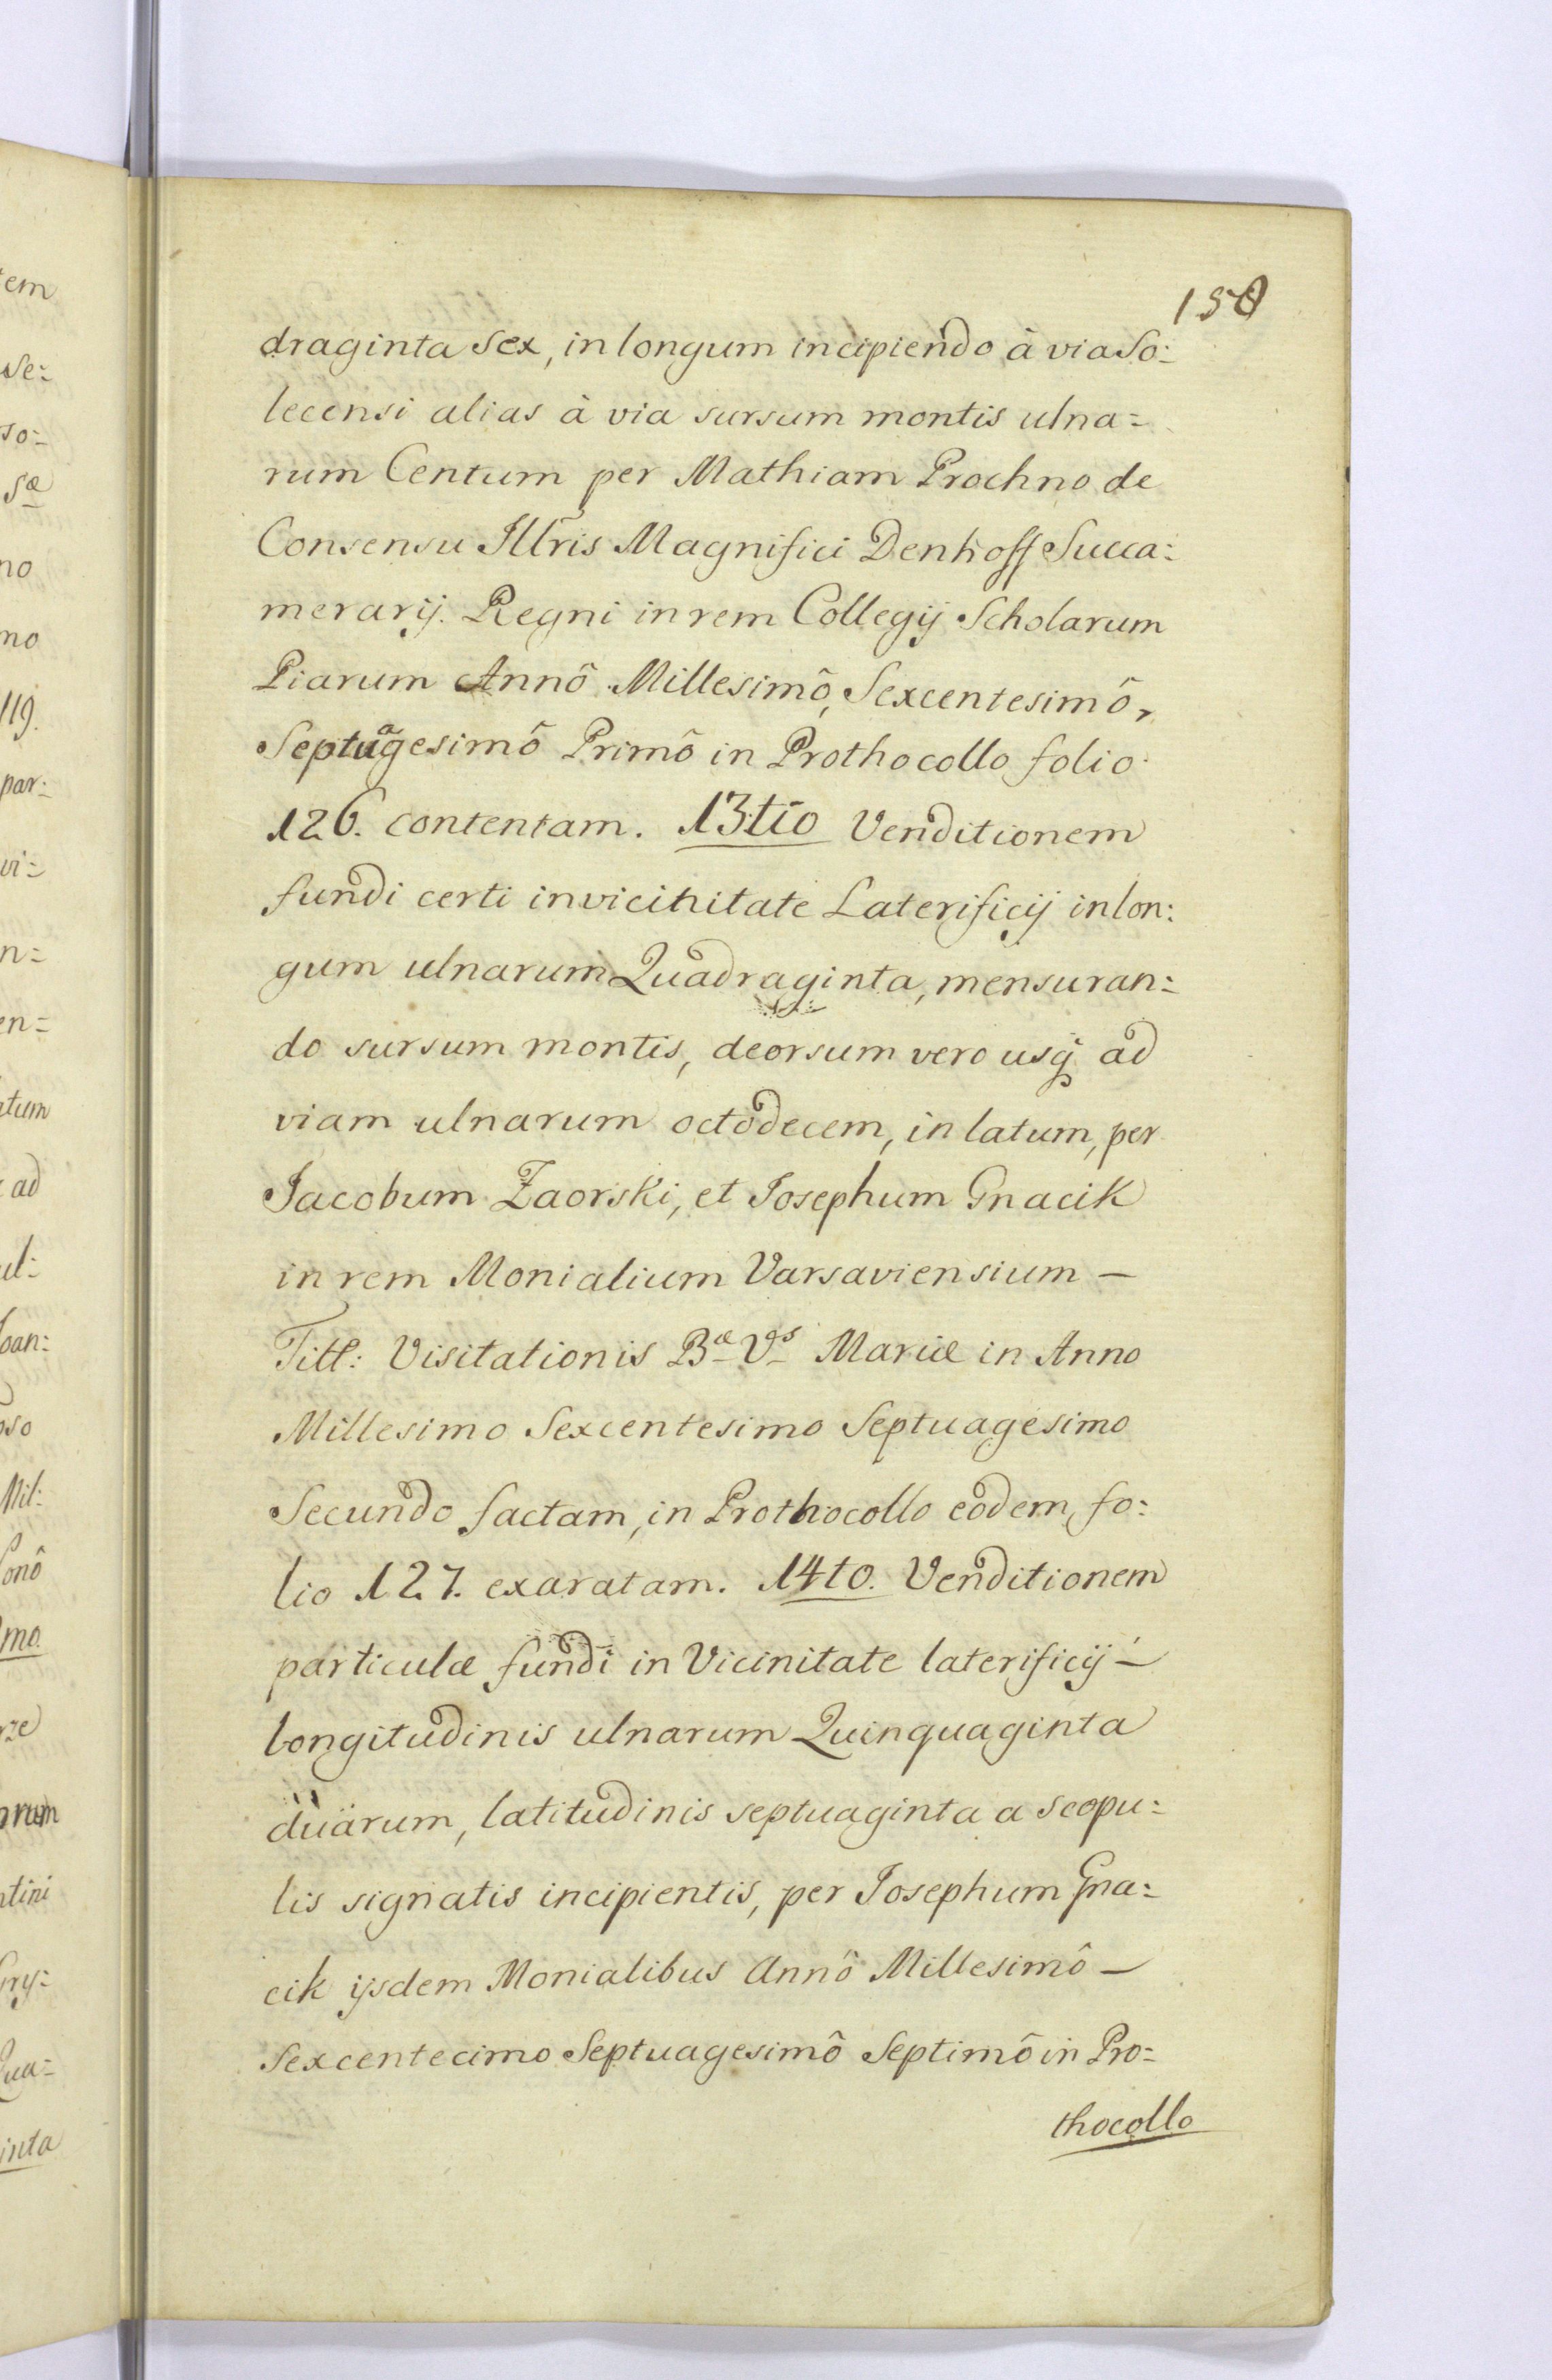 150
draginta sex, in longum incipiendo à via So:
lecensi alias à via sursum montis ulna=
rum Centum per Mathiam Prochno de
Consensu Illris Magnifici Denhoff Succa:
merarij. Regni in rem Collegij Scholarum
Piarum Annô Millesimô, Sexcentesimô,
Septuagesimô Primô in Prothocollo folio
126. contentam. 13tio Venditionem
fundi certi in vicinitate Laterificij in lon:
gum ulnarum Quadraginta, mensuran:
do sursum montis, deorsum vero usq̃ ad
viam ulnarum octodecem, in latum, per
Jacobum Zaorski, et Josephum Gnacik
in rem Monialium Varsaviensium —
Titl: Visitationis Bæ Vs Mariæ in Anno
Millesimo Sexcentesimo Septuagesimo
Secundo factam, in Prothocollo eodem, fo:
lio 127. exaratam. 14to. Venditionem
particulæ fundi in Vicinitate laterificij —
longitudinis ulnarum Quinquaginta
duarum, latitudinis septuaginta a scopu:
lis signatis incipientis, per Josephum Gna:
cik ijsdem Monialibus Annô Millesimô —
Sexcentecimo Septuagesimô Septimô in Pro:
thocollo